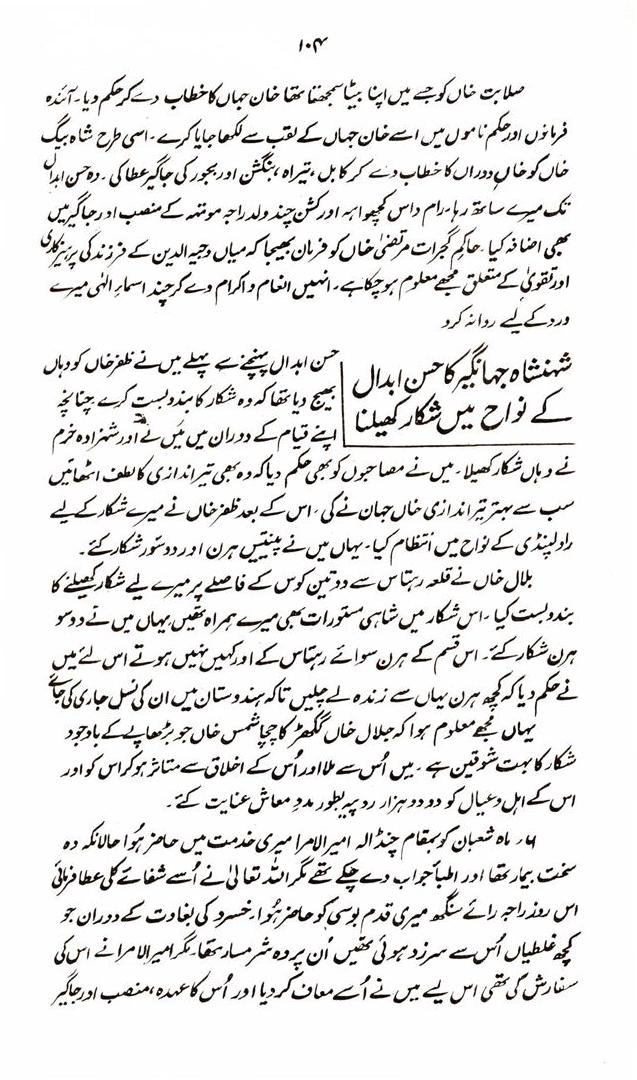 ۱۰۴
صلابت خاں کو جسے میں اپنا بیٹا سمجھتا تھا خان جہاں کا خطاب دے کر حکم دیا۔ آئندہ
فرمانوں اور حکم ناموں میں اسے خان جہاں کے لقب سے لکھا جایا کرے۔ اسی طرح شاہ بیگ
خاں کو خان دوراں کا خطاب دے کر کابل، تیراہ، بنگش اور بجور کی جاگیر عطا کی۔ وہ حسن ابدال
تک میرے ساتھ رہا۔ رام داس کچھواہہ اور کشن چند ولد راجہ موتھہ کے منصب اور جاگیر میں
بھی اضافہ کیا۔ حاکم گجرات مرتضیٰ خاں کو فرمان بھیجا کہ میاں وجیہ الدین کے فرزند کی پرہیزگاری
اور تقویٰ کے متعلق مجھے معلوم ہو چکا ہے۔ انہیں انعام و اکرام دے کر چند اسماء الٰہی میرے
ورد کے لیے روانہ کرو
شہنشاہ جہانگیر کا حسن ابدال
کے نواح میں شکار کھیلنا
حسن ابدال پہنچنے سے پہلے میں نے ظفر خاں کو وہاں
بھیج دیا تھا کہ وہ شکار کا بندوبست کرے چنانچہ
اپنے قیام کے دوران میں میں نے اور شہزادہ خرم
نے وہاں شکار کھیلا۔ میں نے مصاحبوں کو بھی حکم دیا کہ وہ بھی تیر اندازی کا لطف اٹھائیں
سب سے بہتر تیر اندازی خاں جہان نے کی۔ اس کے بعد ظفر خاں نے میرے شکار کے لیے
راولپنڈی کے نواح میں انتظام کیا۔ یہاں میں نے پینتیس ہرن اور دو سؤر شکار کئے۔
بلال خاں نے قلعہ رہتاس سے دو تین کوس کے فاصلے پر میرے لیے شکار کھیلنے کا
بندوبست کیا۔ اس شکار میں شاہی مستورات بھی میرے ہمراہ تھیں یہاں میں نے دو سو
ہرن شکار کئے۔ اس قسم کے ہرن سوائے رہتاس کے اور کہیں نہیں ہوتے اس لئے میں
نے حکم دیا کہ کچھ ہرن یہاں سے زندہ لے چلیں تاکہ ہندوستان میں ان کی نسل جاری کی جائے
یہاں مجھے معلوم ہوا کہ جلال خاں گکھڑ کا چچا شمس خاں جو بڑھاپے کے باوجود
شکار کا بہت شوقین ہے۔ میں اُس سے ملا اور اُس کے اخلاق سے متاثر ہو کر اس کو اور
اس کے اہل و عیال کو دو دو ہزار روپیہ بطور مددِ معاش عنایت کئے۔
۶۔ ماہ شعبان کو بمقام چنڈالہ امیر الامرا میری خدمت میں حاضر ہُوا حالانکہ وہ
سخت بیمار تھا اور اطبا جواب دے چکے تھے مگر اللہ تعالیٰ نے اُسے شفائے کلی عطا فرمائی
اس روز راجہ رائے سنگھ میری قدم بوسی کو حاضر ہُوا۔ خسرو کی بغاوت کے دوران جو
کچھ غلطیاں اُس سے سرزد ہوئی تھیں اُن پر وہ شرمسار تھا۔ مگر امیر الامرا نے اس کی
سفارش کی تھی اس لیے میں نے اُسے معاف کر دیا اور اُس کا عہدہ، منصب اور جاگیر